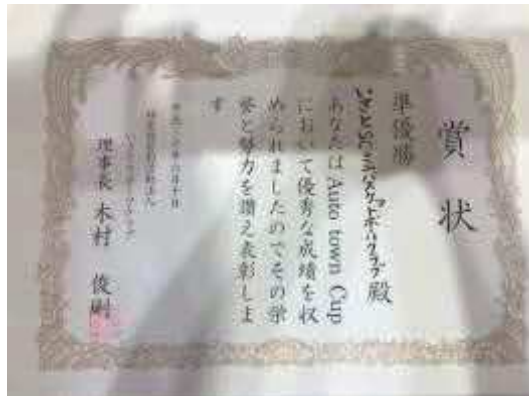 賞状
準優勝
いさとSCミニバスケットボールクラブ殿
あなたは Auto town Cup
において優秀な成績を収
められましたのでその栄
誉と努力を讃え表彰しま
す
理事長 木村 俊尉